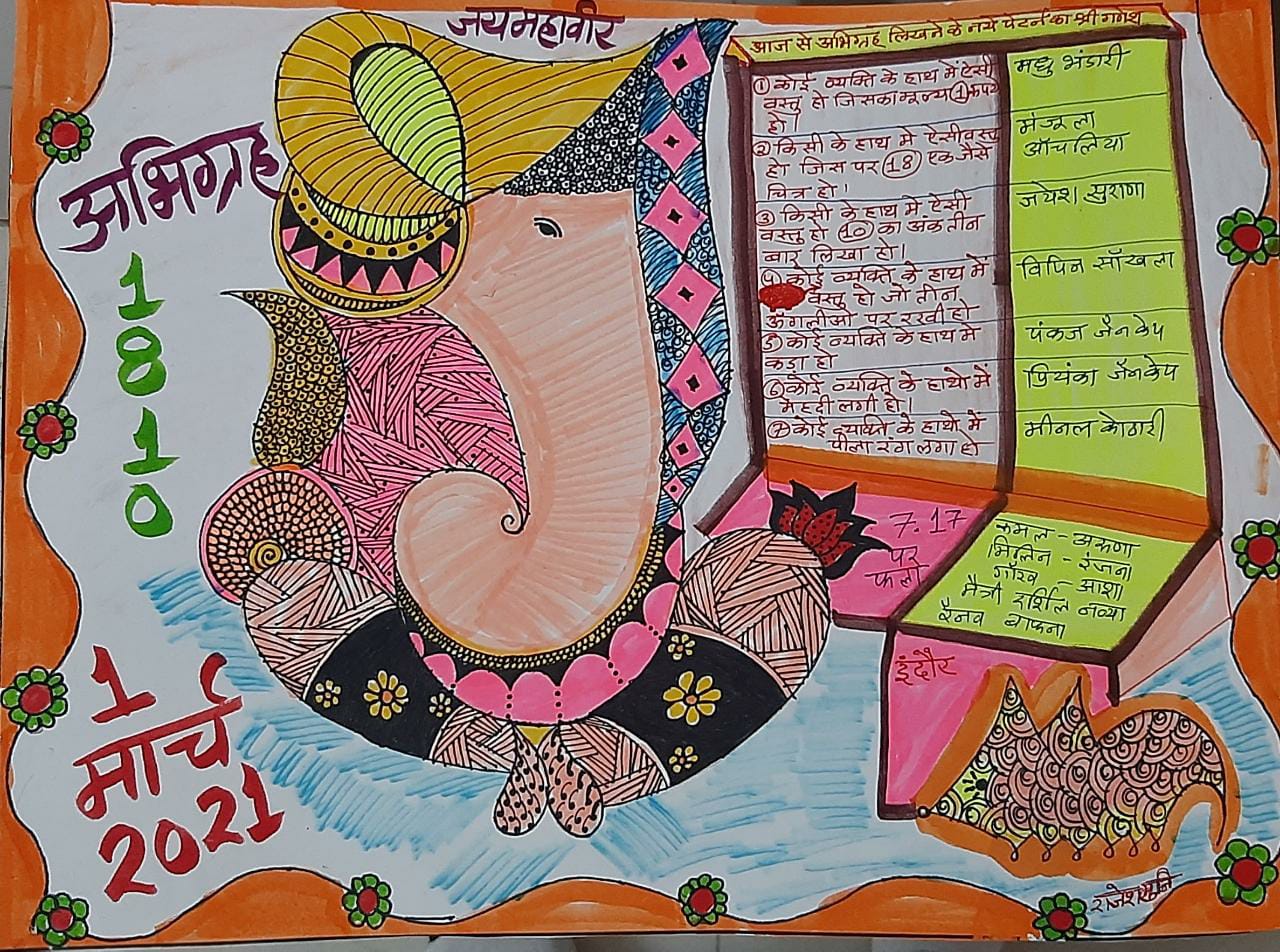 जय महावीर
अभिग्रह
1
8
1
0
1
मार्च
2021
आज से अभिग्रह लिखने के नये पेटर्न का श्री गणेश
① कोई व्यक्ति के हाथ में ऐसी
वस्तु हो जिसका मूल्य ① रूपये
हो।
② किसी के हाथ मे ऐसी वस्तु
हो जिस पर ⑱ एक जैसे
चित्र हो।
③ किसी के हाथ मे ऐसी
वस्तु हो ⑩ का अंक तीन
बार लिखा हो।
④ कोई व्यक्ति के हाथ में
वस्तु हो जो तीन
ऊंगलीओ पर रखी हो
⑤ कोई व्यक्ति के हाथ मे
कड़ा हो
⑥ कोई व्यक्ति के हाथो में
मेहदी लगी हो।
⑦ कोई व्यक्ति के हाथो में
पीला रंग लगा हो
मधु भंडारी
मंजूला
आँचलिया
जयेश सुराणा
विपिन साँखला
पंकज जैन केप
प्रियंका जैन केप
मीनल कोठारी
7.17
पर
फलो
कमल - अरूणा
मिलन - रंजना
गौरव - आशा
मैत्री रर्शिल नव्या
रैनव बाफना
इंदौर
राजेश मुनि